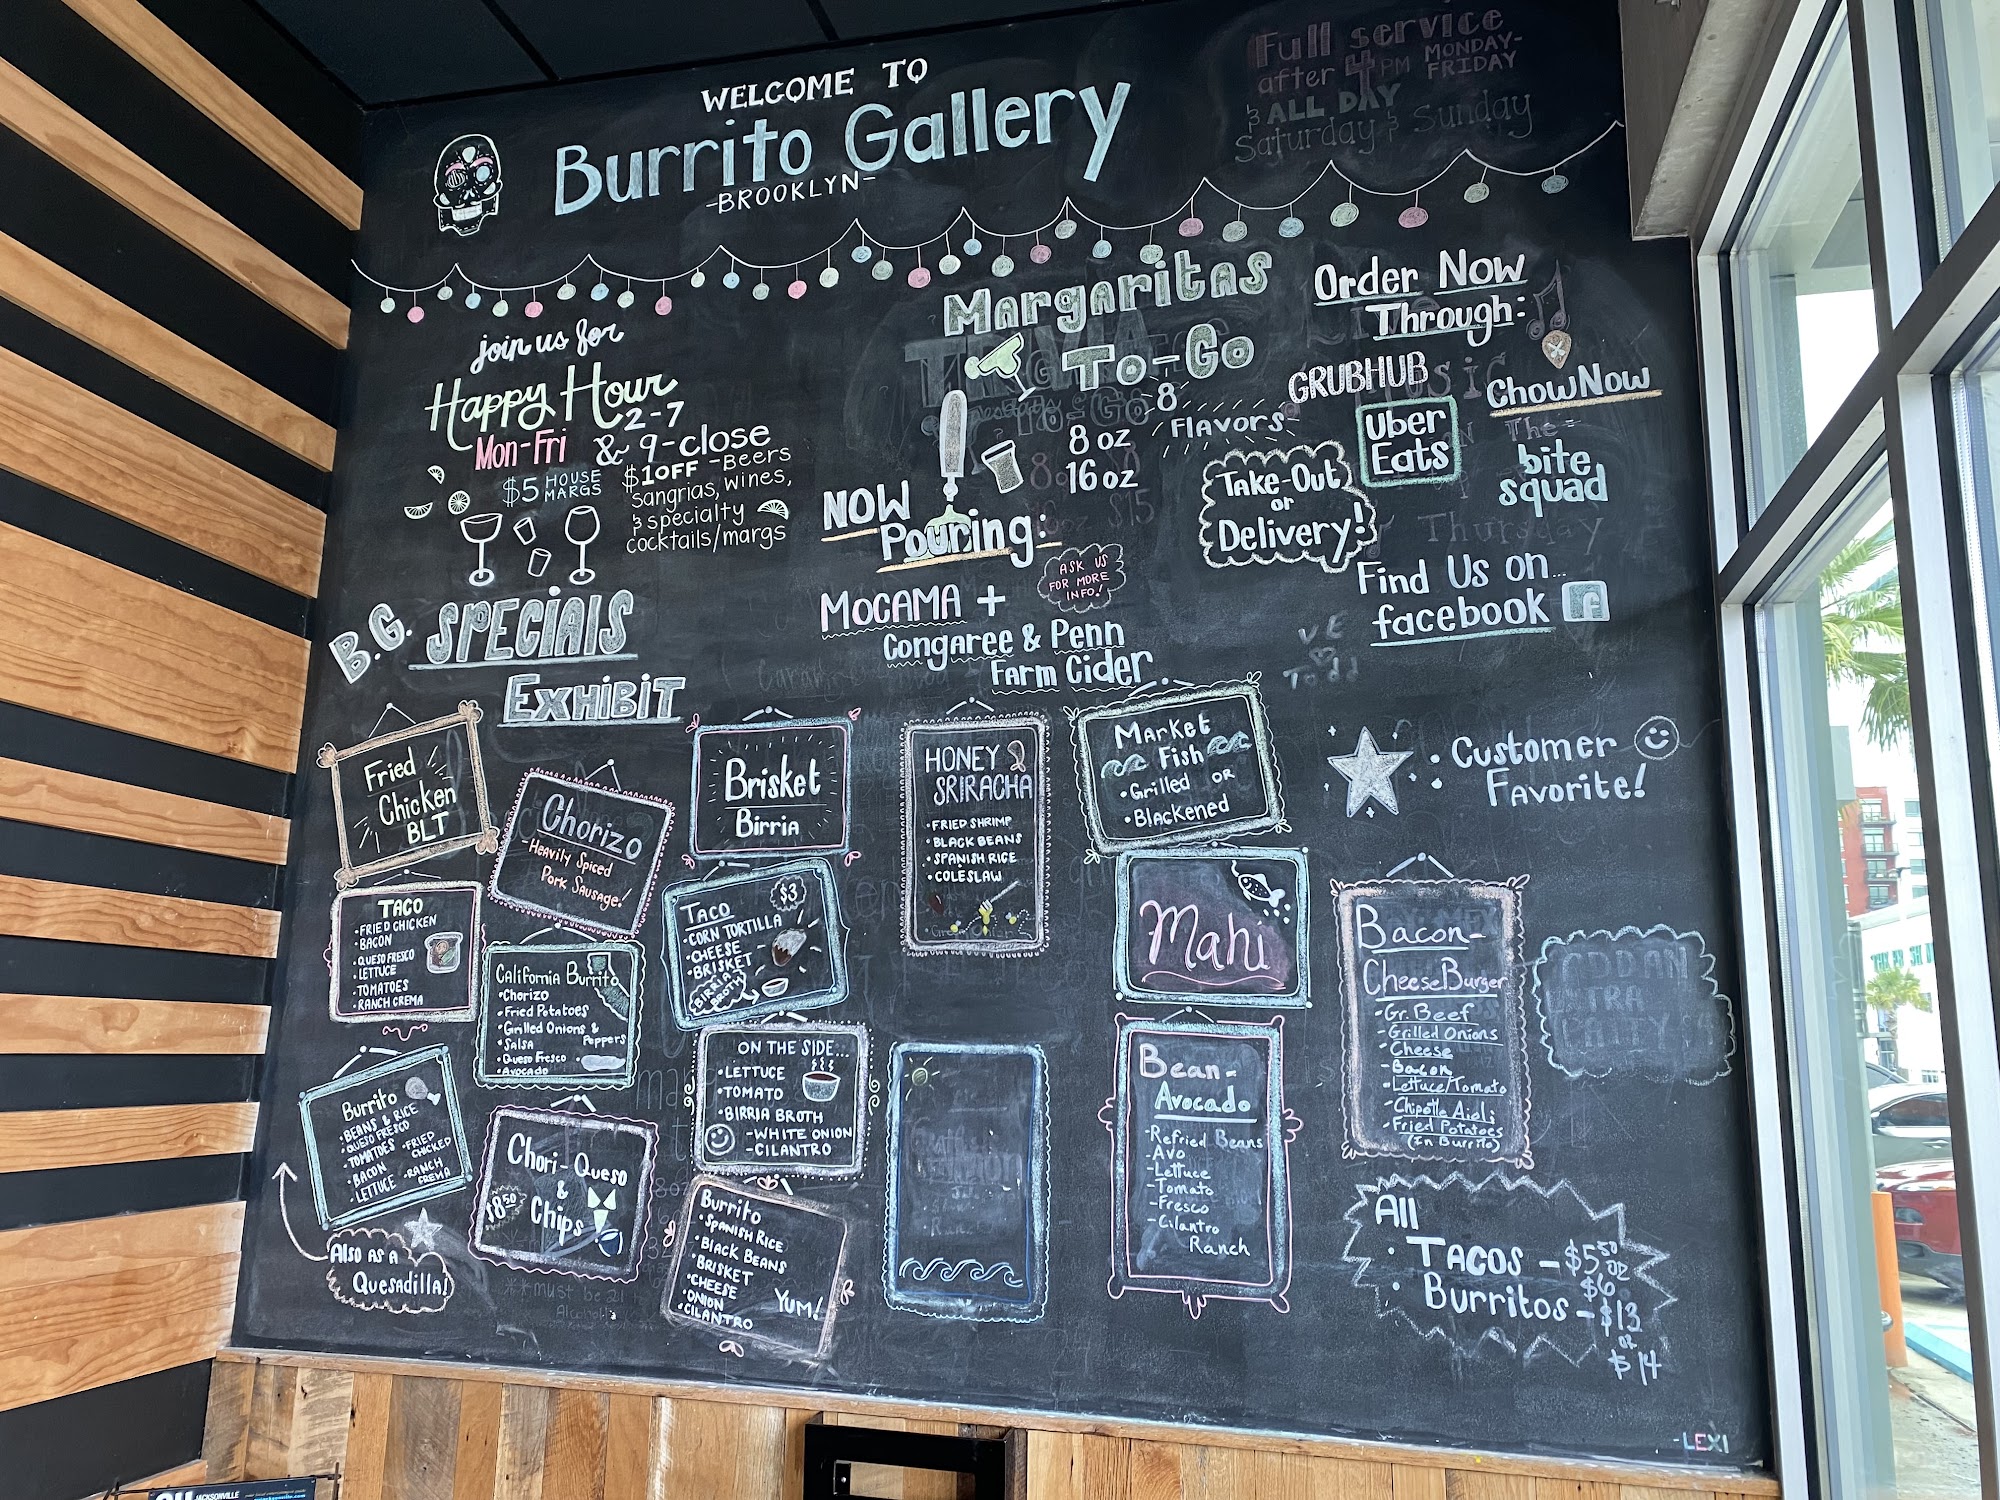 WELCOME TO
Burrito Gallery
-BROOKLYN-
Full service
after 4PM MONDAY-
FRIDAY
& ALL DAY
Saturday & Sunday
join us for
Happy Hour
2-7
Mon-Fri & 9-close
$5 HOUSE
MARGS
$1 OFF - BEERS
Sangrias, WINES,
& specialty
cocktails/margs
Margaritas
To-Go
8
FLAVORS
8 oz
16 oz
NOW
Pouring:
ASK US
FOR MORE
INFO!
MOCAMA +
Congaree & Penn
Farm Cider
Order Now
Through:
GRUBHUB
Uber
Eats
ChowNow
The
bite
squad
Take-Out
or
Delivery!
Thursday
Find Us on...
facebook f
B.G. SPECIALS
EXHIBIT
Fried
Chicken
BLT
TACO
• FRIED CHICKEN
• BACON
• QUESO FRESCO
• LETTUCE
• TOMATOES
• RANCH CREMA
Burrito
• BEANS & RICE
• QUESO FRESCO
• TOMATOES
• BACON
• LETTUCE
• FRIED
CHICKEN
• RANCH
CREMA
Also as a
Quesadilla!
Chorizo
- Heavily Spiced
Pork Sausage!
California Burrito
• Chorizo
• Fried Potatoes
• Grilled Onions &
Peppers
• Salsa
• Queso Fresco
• Avocado
Chori-Queso
&
Chips
$8.50
Brisket
Birria
TACO
$3
• CORN TORTILLA
• CHEESE
• BRISKET
(BIRRIA
BROTH)
ON THE SIDE...
• LETTUCE
• TOMATO
• BIRRIA BROTH
- WHITE ONION
- CILANTRO
Burrito
• SPANISH RICE
• BLACK BEANS
• BRISKET
• CHEESE
• ONION
• CILANTRO
YUM!
HONEY
SRIRACHA
• FRIED SHRIMP
• BLACK BEANS
• SPANISH RICE
• COLESLAW
Market
Fish
• Grilled OR
• Blackened
Mahi
Bean-
Avocado
- Refried Beans
- Avo
- Lettuce
- Tomato
- Fresco
- Cilantro
Ranch
• Customer
Favorite!
Bacon-
CheeseBurger
- Gr. Beef
- Grilled Onions
- Cheese
- Bacon
- Lettuce/Tomato
- Chipotle Aioli
- Fried Potatoes
(In Burrito)
All
• TACOS - $5.50
or
$6
• Burritos - $13
or
$14
-LEXI
JACKSONVILLE